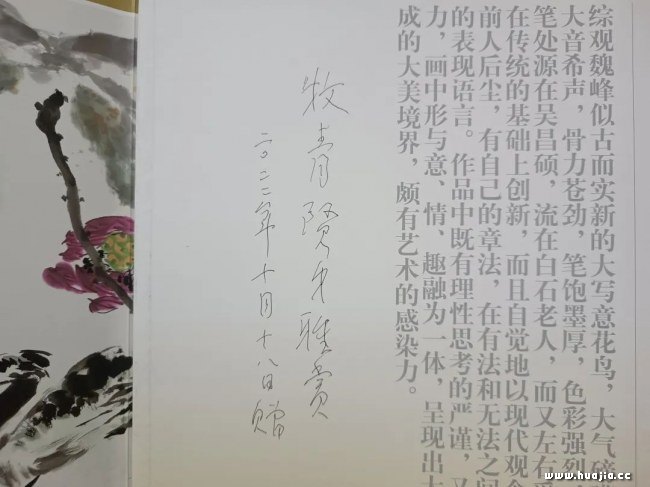 综观魏峰似古而实新的大写意花鸟，大气磅
大音希声，骨力苍劲，笔饱墨厚，色彩强烈
笔处源在吴昌硕，流在白石老人，而又左右
在传统的基础上创新，而且自觉地以现代观念
前人后尘，有自己的章法，在有法和无法之间
的表现语言。作品中既有理性思考的严谨，又
力，画中形与意、情、趣融为一体，呈现出大
成的大美境界，颇有艺术的感染力。
牧青贤弟雅赏
二〇二二年十月十八日赠
www.huajia.cc